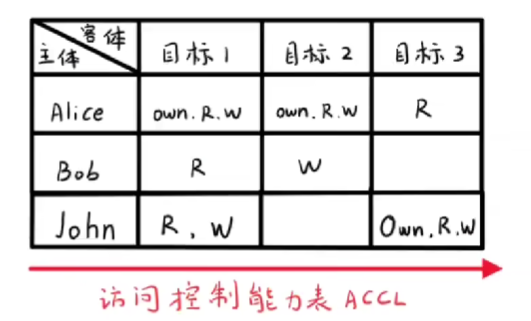 客体
主体 目标1 目标2 目标3
Alice own.R.W own.R.W R
Bob R W
John R、W Own.R.W
访问控制能力表ACCL